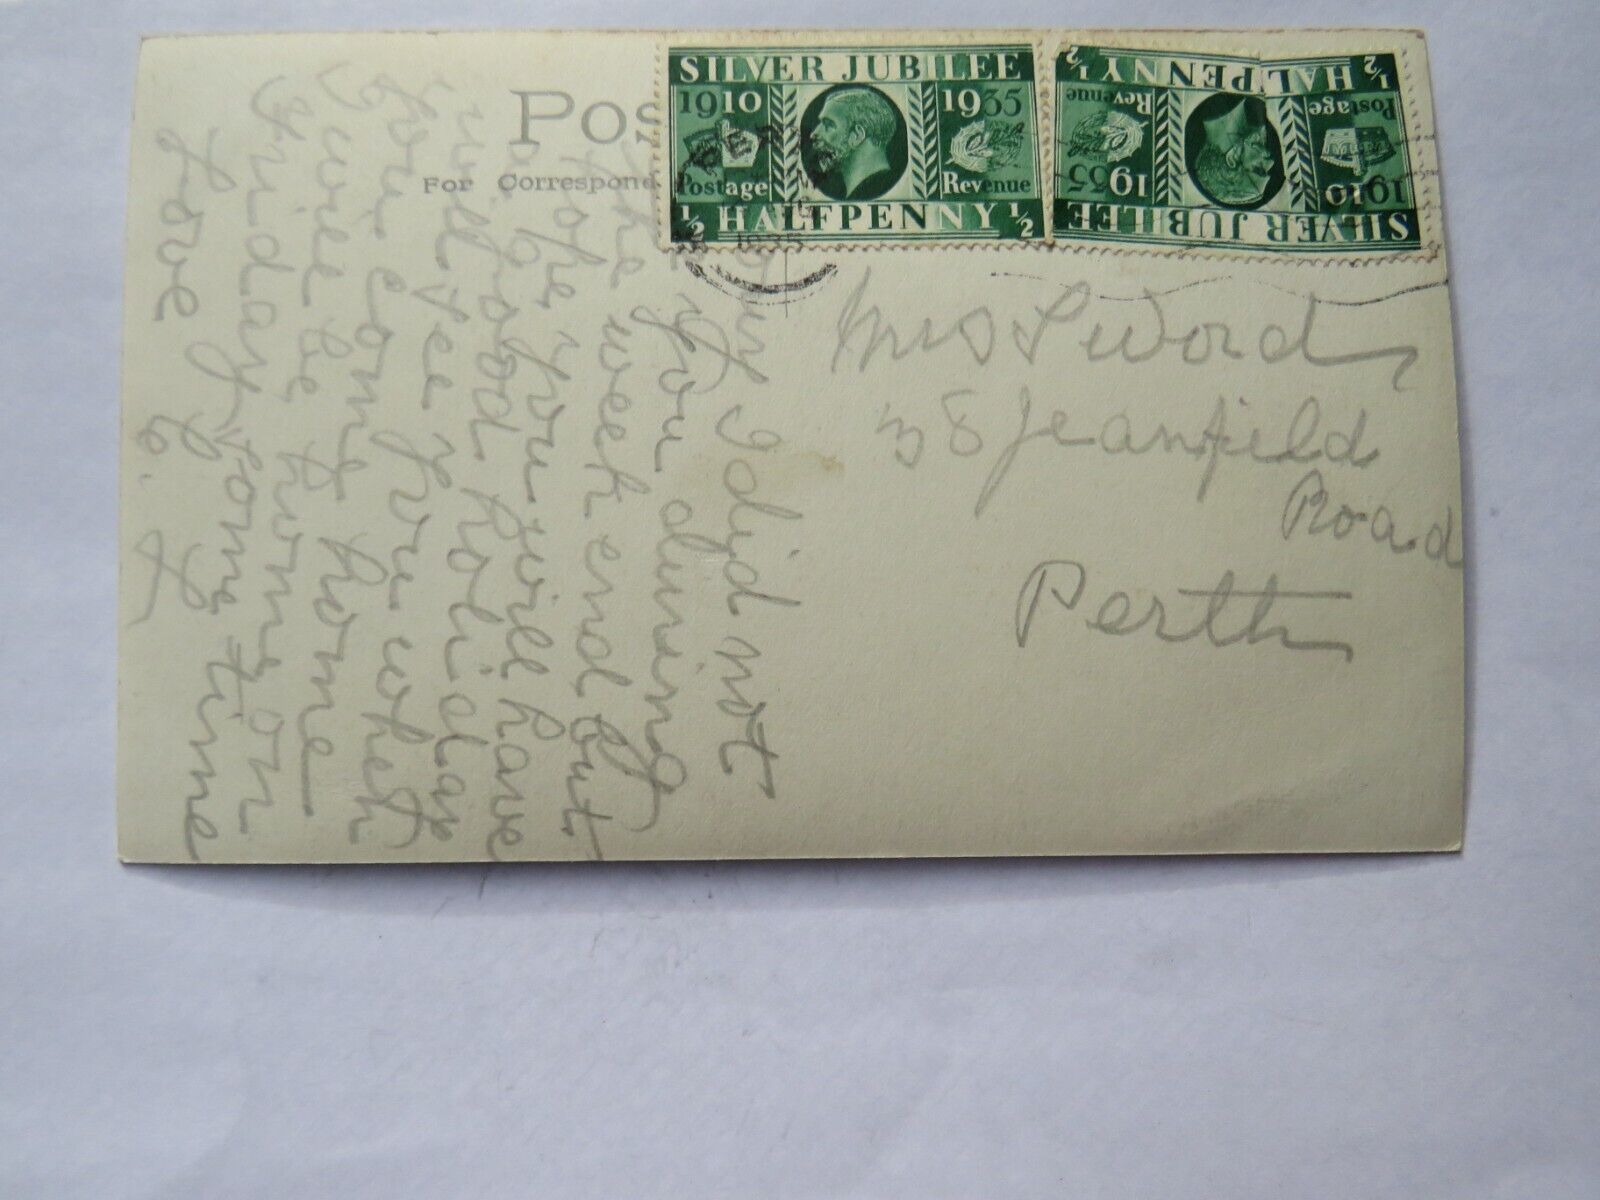 Pos
For Correspond
SILVER JUBILEE
1910 1935
Postage Revenue
½ HALFPENNY ½
SILVER JUBILEE
1910 1935
Postage Revenue
½ HALFPENNY ½
PERTH
1935
I did not
you during
the week end but
hope you will have
a good holiday
will see you when
you come home
I will be home on
Friday some time
Love
Miss Sword
38 Jeanfield
Road
Perth